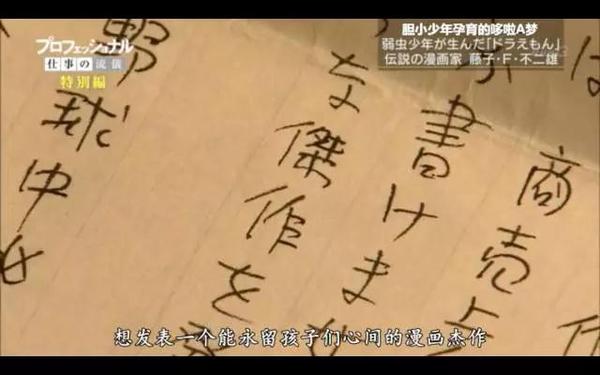 プロフェッショナル
仕事の流儀
特別編
胆小少年孕育的哆啦A梦
弱虫少年が生んだ「ドラえもん」
伝説の漫画家 藤子・F・不二雄
は
商売
書けま
な傑作を
野球中
想发表一个能永留孩子们心间的漫画杰作